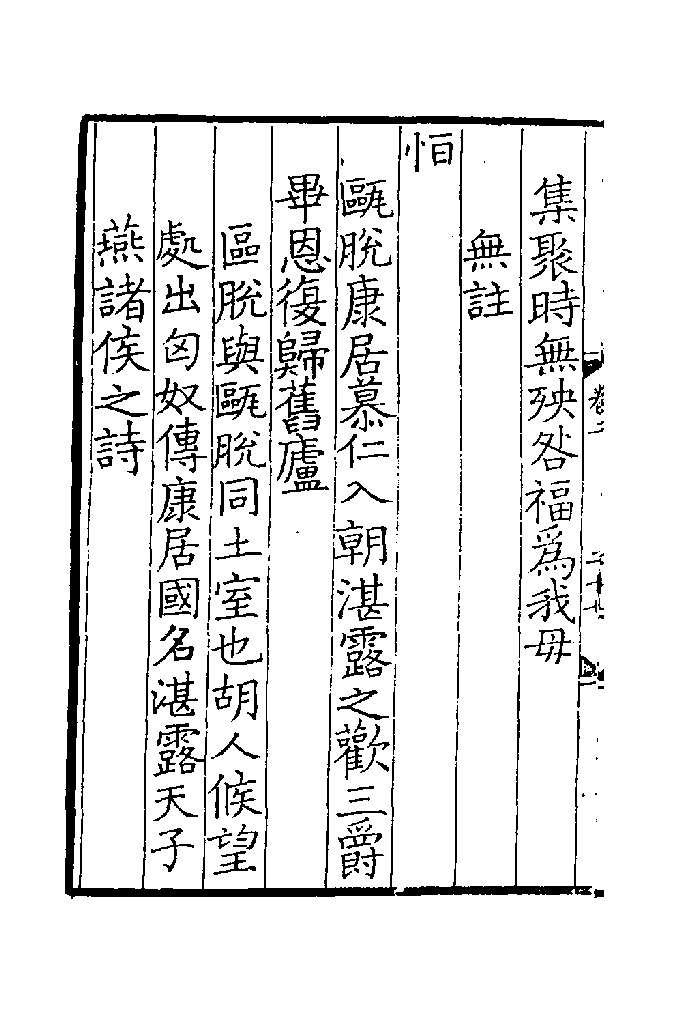 集聚時無殃咎福爲我毋
無註
恒
甌脫康居慕仁入朝湛露之歡三爵
畢恩復歸舊廬
區脫與甌脫同土室也胡人候望
處出匈奴傳康居國名湛露天子
燕諸侯之詩